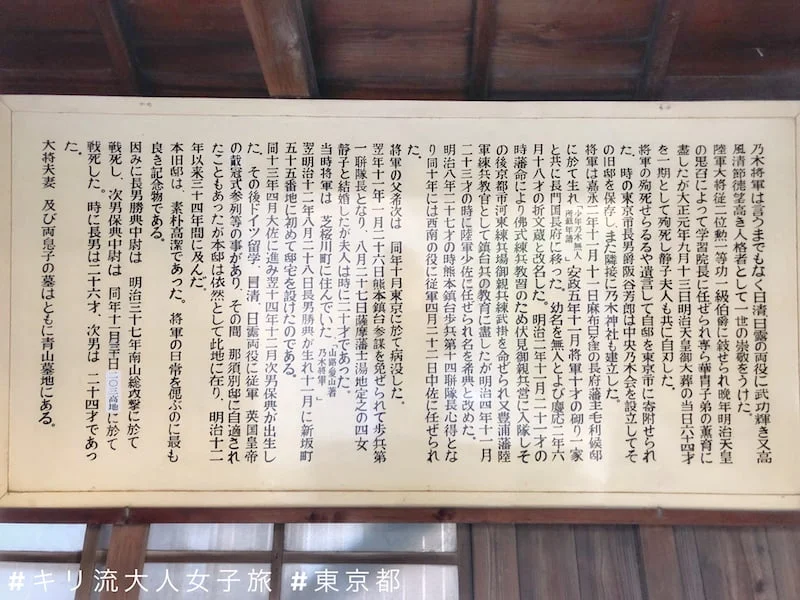 乃木将軍は言うまでもなく日清日露の両役に武功輝き又高
風清節徳望高き人格者として一世の崇敬をうけた。
陸軍大将従二位勲一等功一級伯爵に叙せられ晩年明治天皇
の思召によって学習院長に任ぜられ専ら華冑子弟の薫育に
盡したが大正元年九月十三日明治天皇御大葬の当日六十四才
を一期として殉死し静子夫人も共に自刃した。
将軍の殉死せらるるや遺言して自邸を東京市に寄附せられ
た。時の東京市長男爵阪谷芳郎は中央乃木会を設立してそ
の旧邸を保存しまた隣接に乃木神社も建立した。
将軍は嘉永二年十一月十一日麻布日ヶ窪の長府藩主毛利候邸
に於て生れ「少年乃木無人」所載年譜 安政五年十一月将軍十才の砌り一家
と共に長門国長府に移った。幼名を無人とよび慶応二年六
月十八才の折文蔵と改名した。明治二年十一月二十一才の
時藩命により佛式練兵教習のため伏見御親兵営に入隊しそ
の後京都市河東練兵場御親兵練武掛を命ぜられ又豊浦藩陸
軍練兵教官として鎮台兵の教育に盡したが明治四年十一月
二十三才の時に陸軍少佐に任ぜられ名を希典と改めた。
明治八年二十七才の時熊本鎮台歩兵第十四聯隊長心得とな
り同十年には西南の役に従軍四月二十二日中佐に任ぜられ
た。
将軍の父希次は 同年十月東京に於て病没した。
翌年十一年一月二十六日熊本鎮台参謀を免ぜられて歩兵第
一聯隊長となり、八月二十七日薩摩藩士湯地定之の四女
静子と結婚したが夫人は時に二十才であった。
当時将軍は 芝桜川町に住んでいた。「山路愛山著 乃木将軍」
翌明治十二年八月二十八日長男勝典が生れ十一月に新坂町
五十五番地に初めて邸宅を設けたのである。
同十三年四月大佐に進み翌十四年十二月次男保典が出生し
た。その後ドイツ留学、日清、日露両役に従軍 英国皇帝
の戴冠式参列等の事があり、その間 那須別邸に自適され
たこともあったが本邸は依然として此地に在り、明治十二
年以来三十四年間に及んだ。
本旧邸は、素朴高潔であった。将軍の日常を偲ぶのに最も
良き記念物である。
因みに長男勝典中尉は 明治三十七年南山総攻撃に於て
戦死し、次男保典中尉は 同年十一月三十日二〇三高地に於て
戦死した。時に長男は二十六才、次男は 二十四才であっ
た。
大将夫妻 及び両息子の墓はともに青山墓地にある。
#キリ流大人女子旅 #東京都